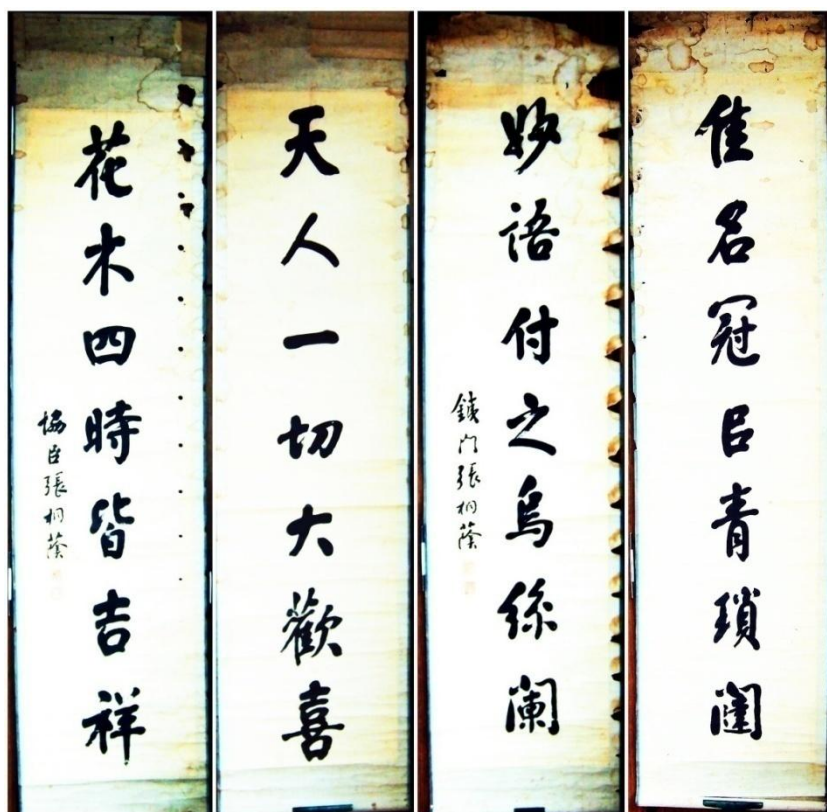 佳名冠㠯青瑣闥
妙語付之烏絲闌
鐵門張桐蔭
天人一切大歡喜
花木四時皆吉祥
恊臣張桐蔭